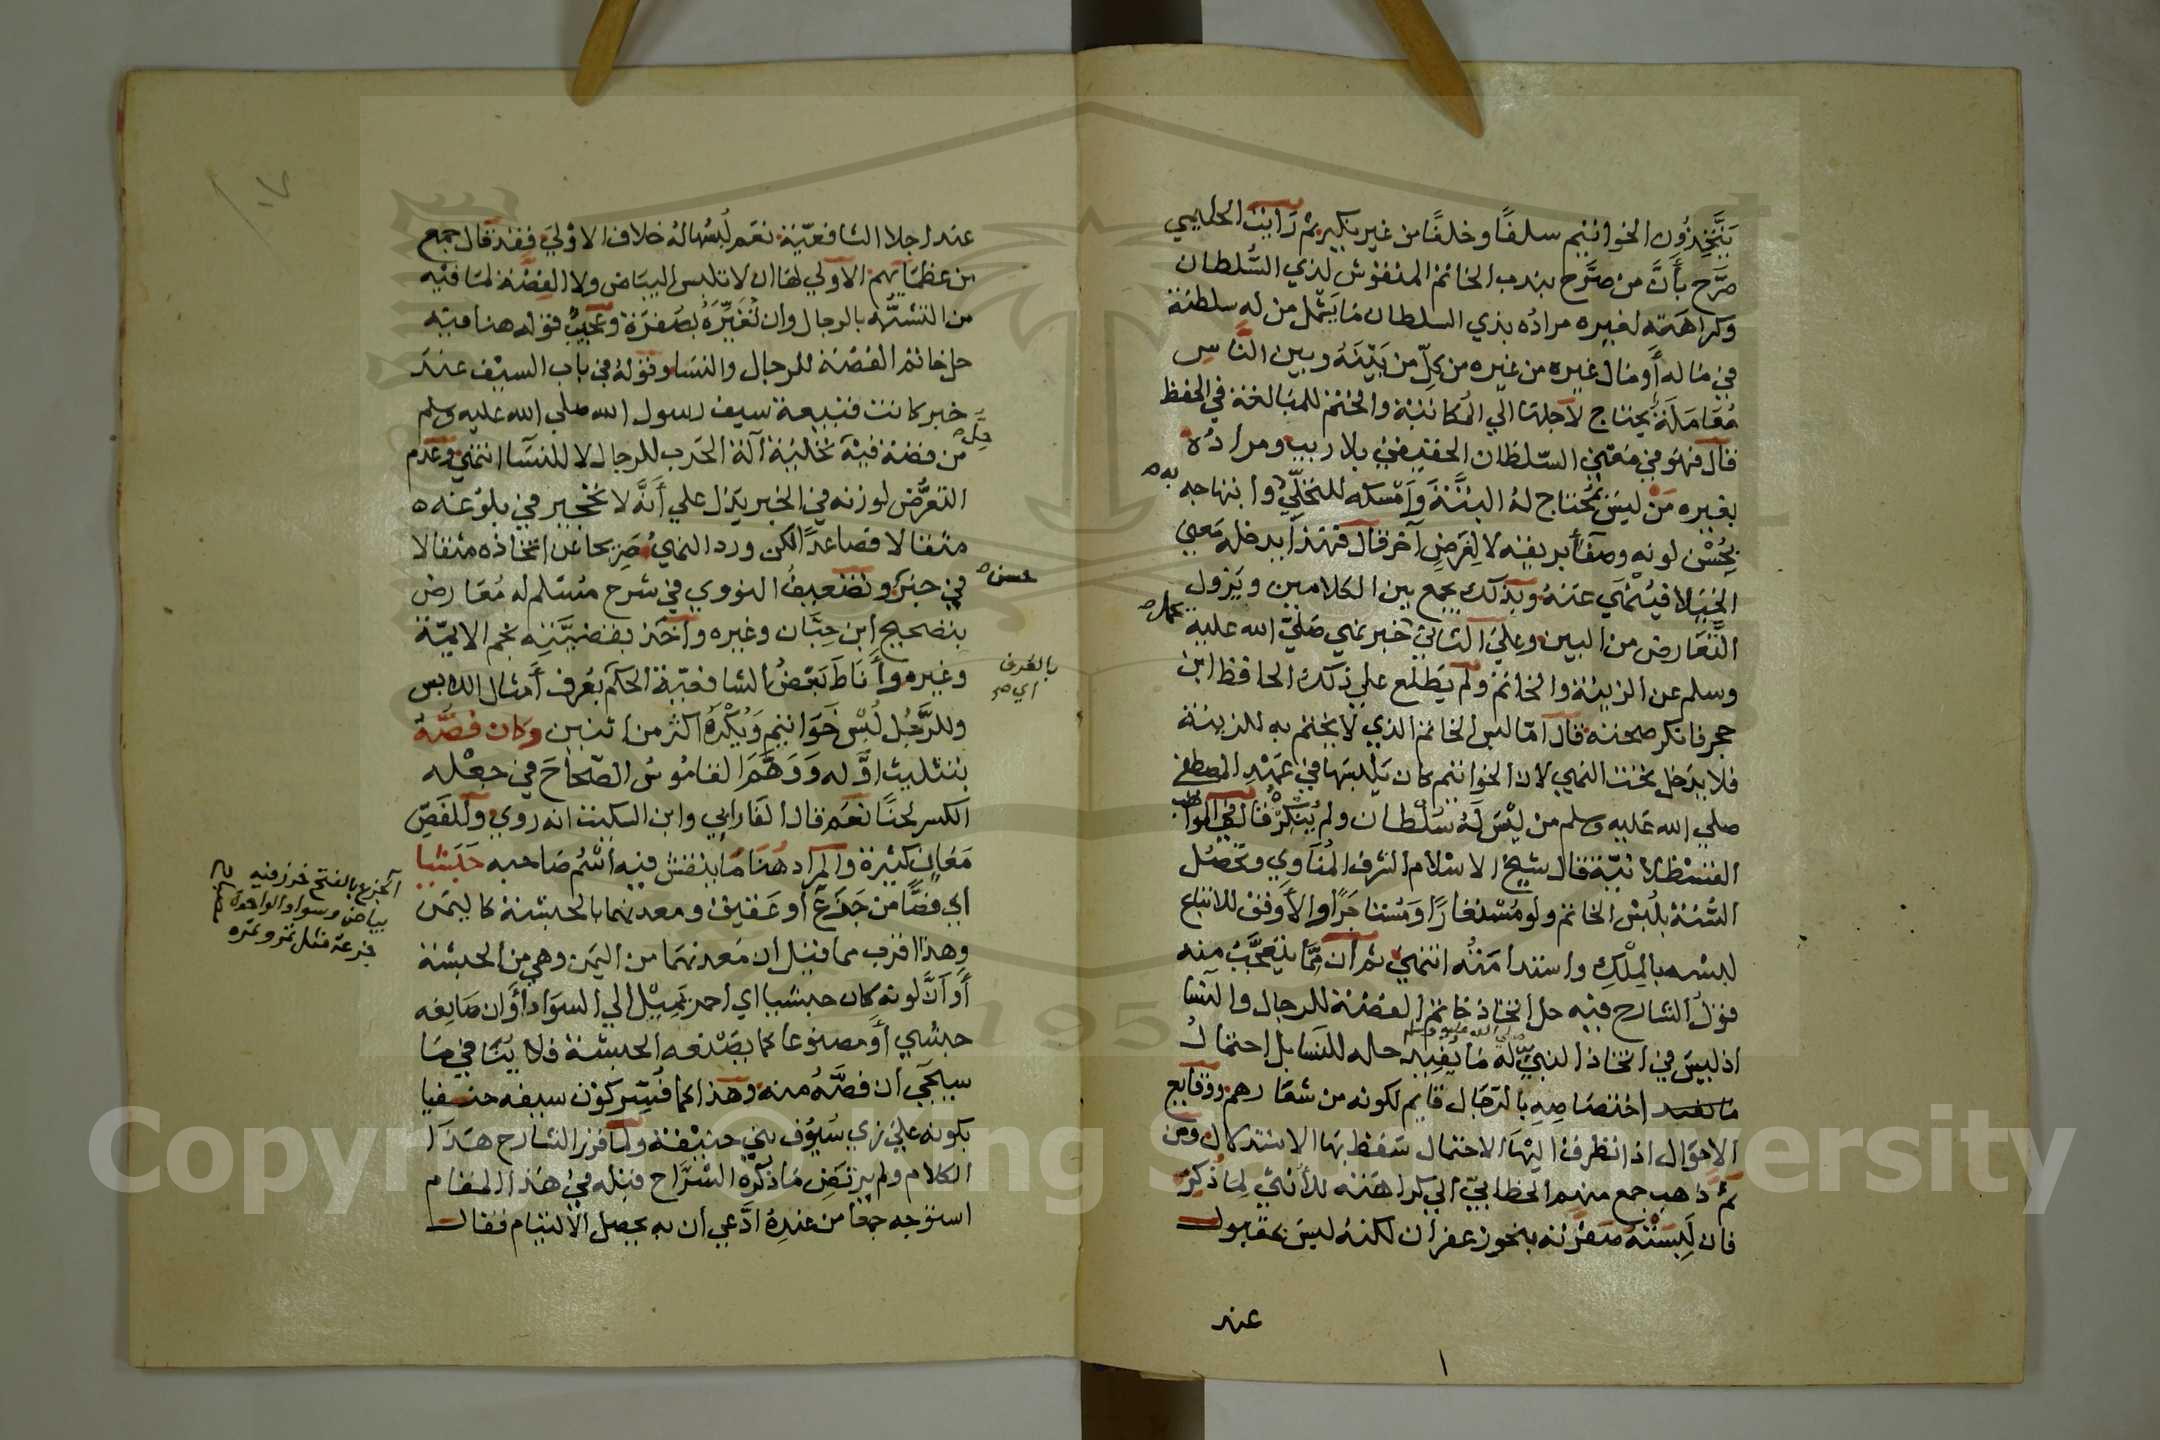 يتخذون الخواتيم سلفًا وخلفًا من غير نكير ثم رأيت الحليمي
صرَّح بأنَّ من صرَّح بندب الخاتم المنقوش لذي السُّلطان
وكراهته لغيره مراده بذي السلطان ما يشمل من له سلطنة
في ماله أو مال غيره من غيره من كلّ من بينه وبين الناس
مُعَامَلَة يحتاج لأجلها الي المُكاتبة والختم للمبالغة في الحفظ
قال فهو في معني السّلطان الحقيقي بلا ريب ومراده
بغيره من ليس يحتاج له البتَّة وأمسكه للتحلّي وابتهاجه به
بحُسْن لونه وصفا بريقه لا لِغرضٍ آخر قال فهذا يدخله معني
الخيلا فينهي عنه وبذلك يجمع بين الكلامين ويزول
التَّعارض من البين وعلي الثاني يحمل خبر نهي صلّي الله عليه
وسلم عن الزينة والخاتم ولم يطّلع علي ذلك الحافظ ابن
حجر فانكر صحته قال امّا لبس الخاتم الذي لا يختم به للزينة
فلا يدخل تحت النهي لان الخواتيم كان يلبسها في عهد المصطفي
صلي الله عليه وسلم من ليس له سلطان ولم يُنكِرْ قال في المواهب
القسطلانيّة قال شيخ الاسلام الشرف المُنَاوِي وتحصُل
السُّنة بلُبْس الخاتم ولو مُسْتعارًا ومُستاجَرًا والأوفق للاتباع
لبسه بالمِلْكِ واستدامَتُه انتهي ثم ان ممَّا يتعجَّبُ منه
قولُ الشارح فيه حل اتخاذ خاتم الفضة للرجال والنسا
اذ ليس في اتخاذ النبي صلي الله عليه وسلم له ما يُفِيد حله للنسا بل احتمالُ
اختصاصِهِ بالرّجال قايم لكونه من شعارهم ووقايع
الاحوال اذا تطرق اليها الاحتمال سقط بها الاستدلال ومن
ثَمَّ ذاهب جمع منهم الخطابيّ الي كراهته للأنثي لِما ذُكِرَ
فان لَبِسَتْهُ صفَّرته بنحو زعفران لكنه ليس بمقبول
عند
عند اجلا الشافعيّة نعم لُبسُها له خلاف الاولي فقد قال جمع
من عظمايهم الأولي لها ان لا تلبس البياض ولا الفضة لما فيه
من التشبُّه بالرجال وان تُغيِّرَهُ بصفرة وعجيبٌ قوله هنا فيه
حل خاتم الفضة للرجال والنسا وقوله في باب السيف عند
خبر كانت قبيعة سيف رسول الله صلي الله عليه وسلم
من فضة فيه حل تحلية آلة الحرب للرجال لا للنسا انتهي وعدم
التعرُّض لوزنه في الخبر يدل علي أنَّه لا تحجير في بلوغه
مثقالا فصاعدًا لكن ورد النهي صَرِيحا عن اتخاذه مثقالا
في خبر حسن وتضعيفُ النووي في شرح مسلم له مُعارض
بتصحيح ابن حِبَّان وغيره وأخذ بقضيَّته نجم الايمّة
وغيره وأَنَاطَ بعضُ الشافعيّة الحكم بعُرف أمثال اللابس
بالعرف
اي
وللرَّجُل لُبْس خَوَاتيم ويُكْرَهُ اكثر من اثنين وكان فصُّهُ
بتثليث اوَّله ووَهَّمَ القاموسُ الصّحاحَ في جعْله
الكسر لحنًا نعم قال الفارابي وابن السكيت انه ردي وللفَصِّ
مَعَانٍ كثيرة والمراد هُنَا مَا ينقش فيه اسْمُ صاحبه حَبَشيا
أي فصًّا من جَزَعٍ أو عقيق ومعدنهما بالحبشة كاليمن
وهذا اقرب مما قيل ان معدنهما من اليمن وهي من الحبشة
أو أنَّ لونه كان حبشيا اي احمر يَمِيْل الي السواد أو أن صَانِعه
حبشي أو مصنوعا كما يصْنعه الحبشة فلا يُنَافي مَا
سيجي ان فصَّهُ منه وهذا كما فُسِّر كوْن سيفه حنفيا
بكونه علي زي سيُوف بني حنيفة ولما قرر الشارح هَذَا
الكلام ولم يرتضِ ما ذكره الشُّرَّاح قبله في هذا المقام
استوجه جمعا من عندِهِ ادَّعي ان به يحصل الالتيام فقال
الجزع بالفتح خرز فيه
بياض وسواد الواحدة
جزعة مثل تمر وتمرة